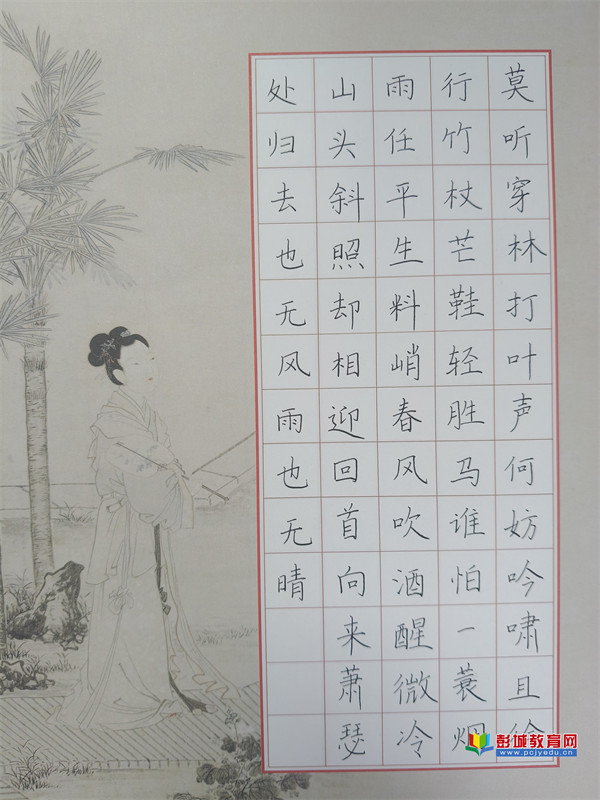 莫听穿林打叶声何妨吟啸且徐
行竹杖芒鞋轻胜马谁怕一蓑烟
雨任平生料峭春风吹酒醒微冷
山头斜照却相迎回首向来萧瑟
处归去也无风雨也无晴
彭城教育网
www.pcjyedu.cn